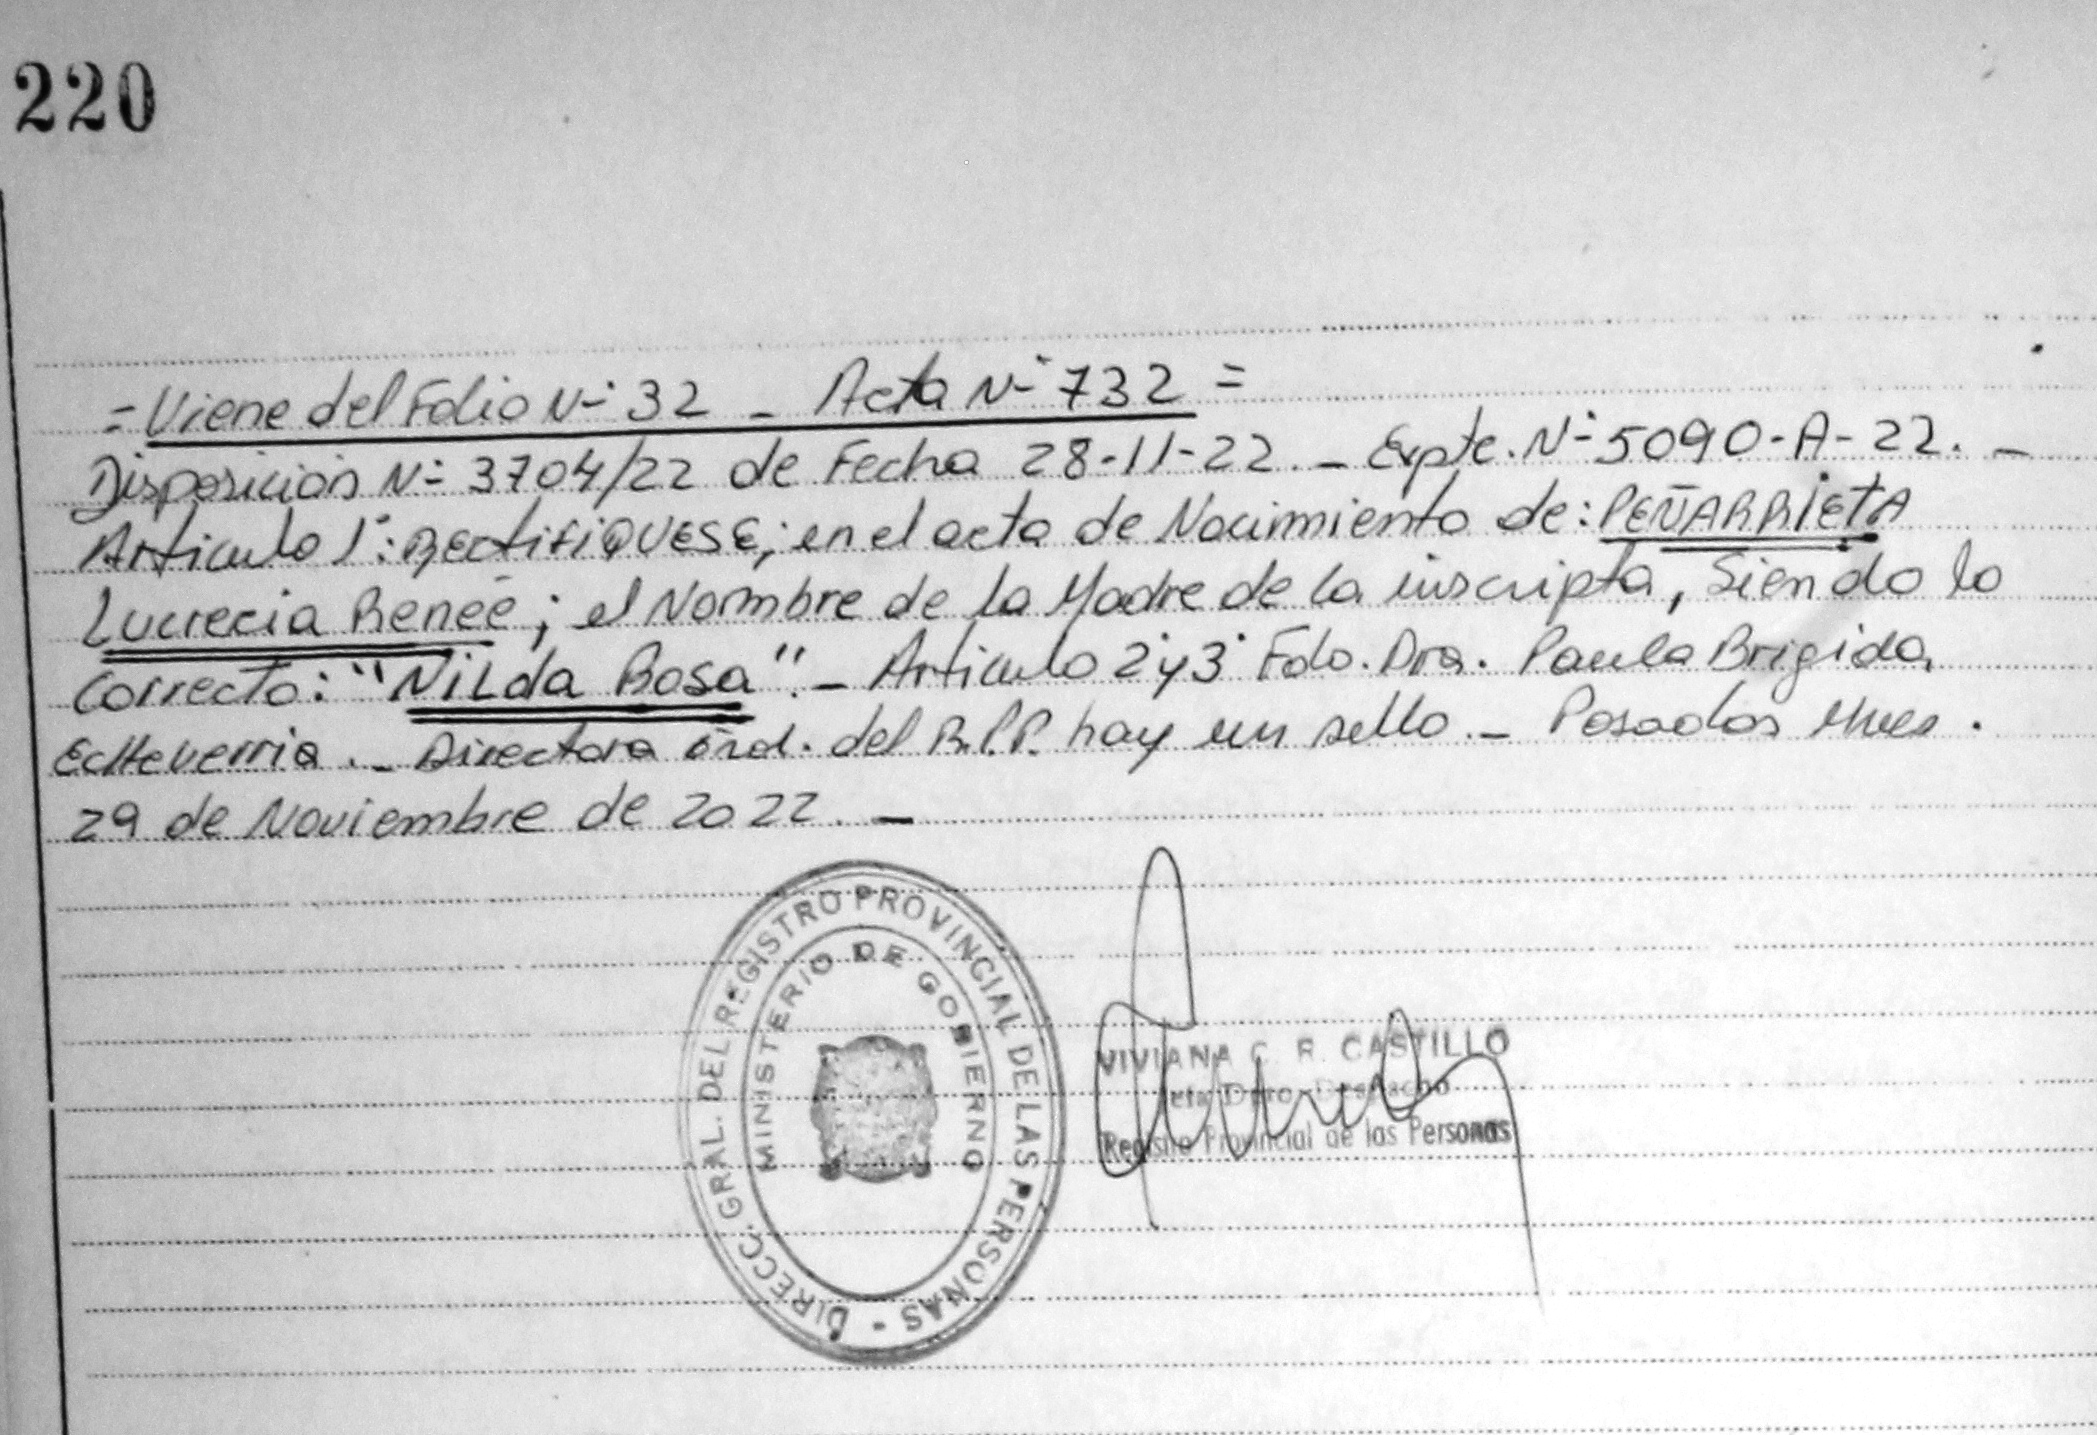 220
= Viene del Folio N° 32 - Acta N° 732 =
Disposición N° 3704/22 de Fecha 28-11-22. - Expte. N° 5090-A-22. -
Articulo 1°: RectifiQUESE; en el acta de Nacimiento de: PEÑARRIETA
Lucrecia Reneé; el Nombre de la Madre de la inscripta, Siendo lo
Correcto: "Nilda Rosa". - Articulo 2° y 3° Fdo. Dra. Paula Brigida
Echeverria. - Directora Gral. del R.P.P. hay un sello. - Posadas Mnes.
29 de Noviembre de 2022. -
DIRECC. GRAL. DEL REGISTRO PROVINCIAL DE LAS PERSONAS -
MINISTERIO DE GOBIERNO
VIVIANA C. R. CASTILLO
Dpto. Despacho
Registro Provincial de las Personas